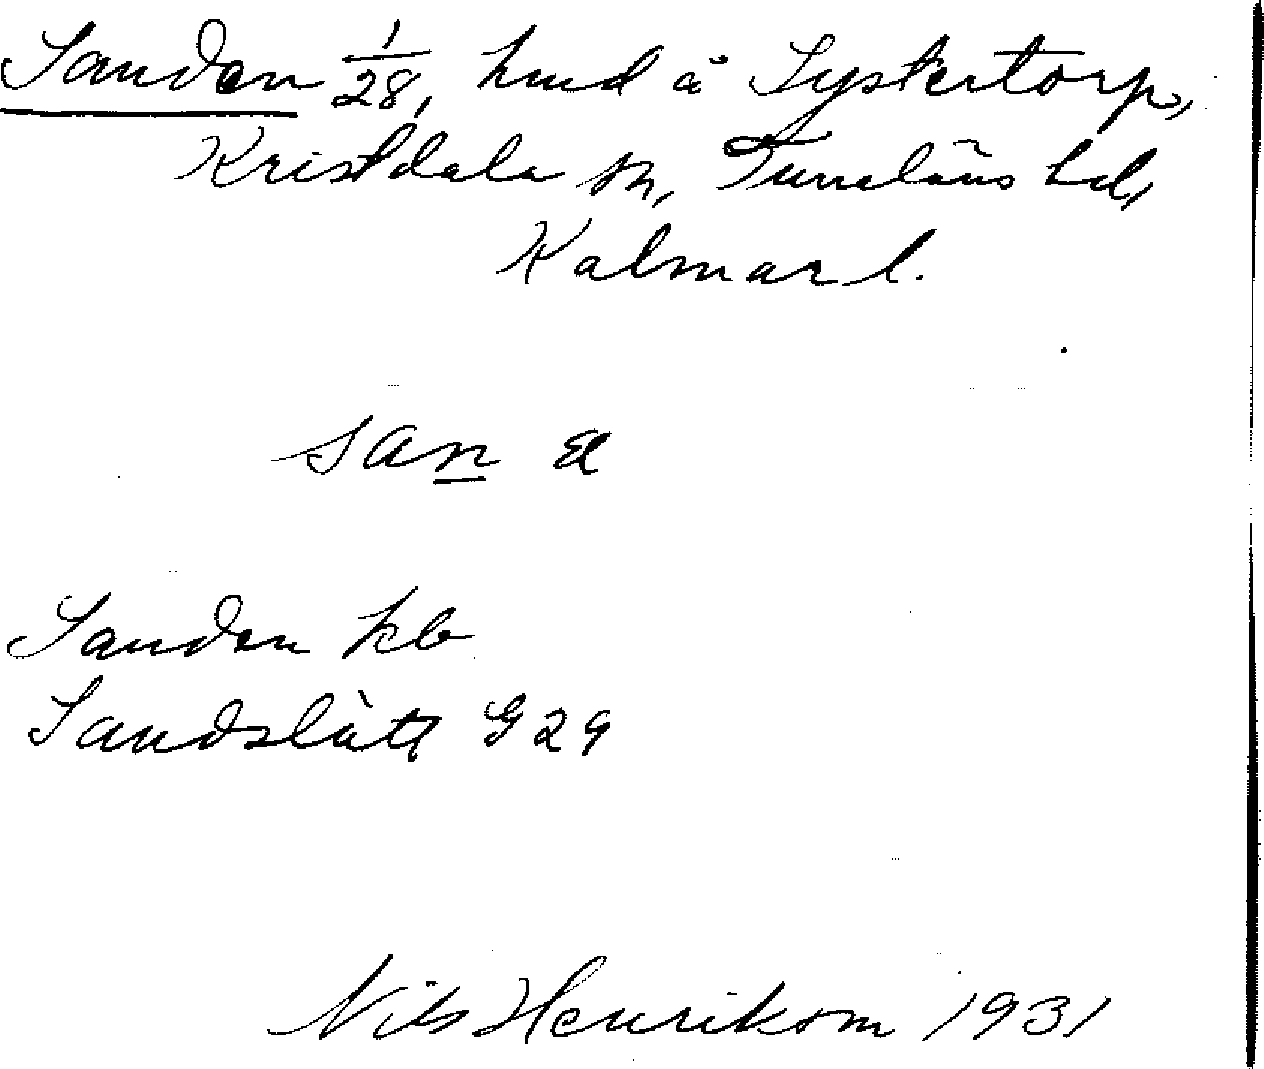 Sanden 1/28, hmd å Systertorp,
Kristdala sn, Tunaläns hd,
Kalmar l.
san
Sanden kb
Sandslätt G 29
Nils Henrikson 1931